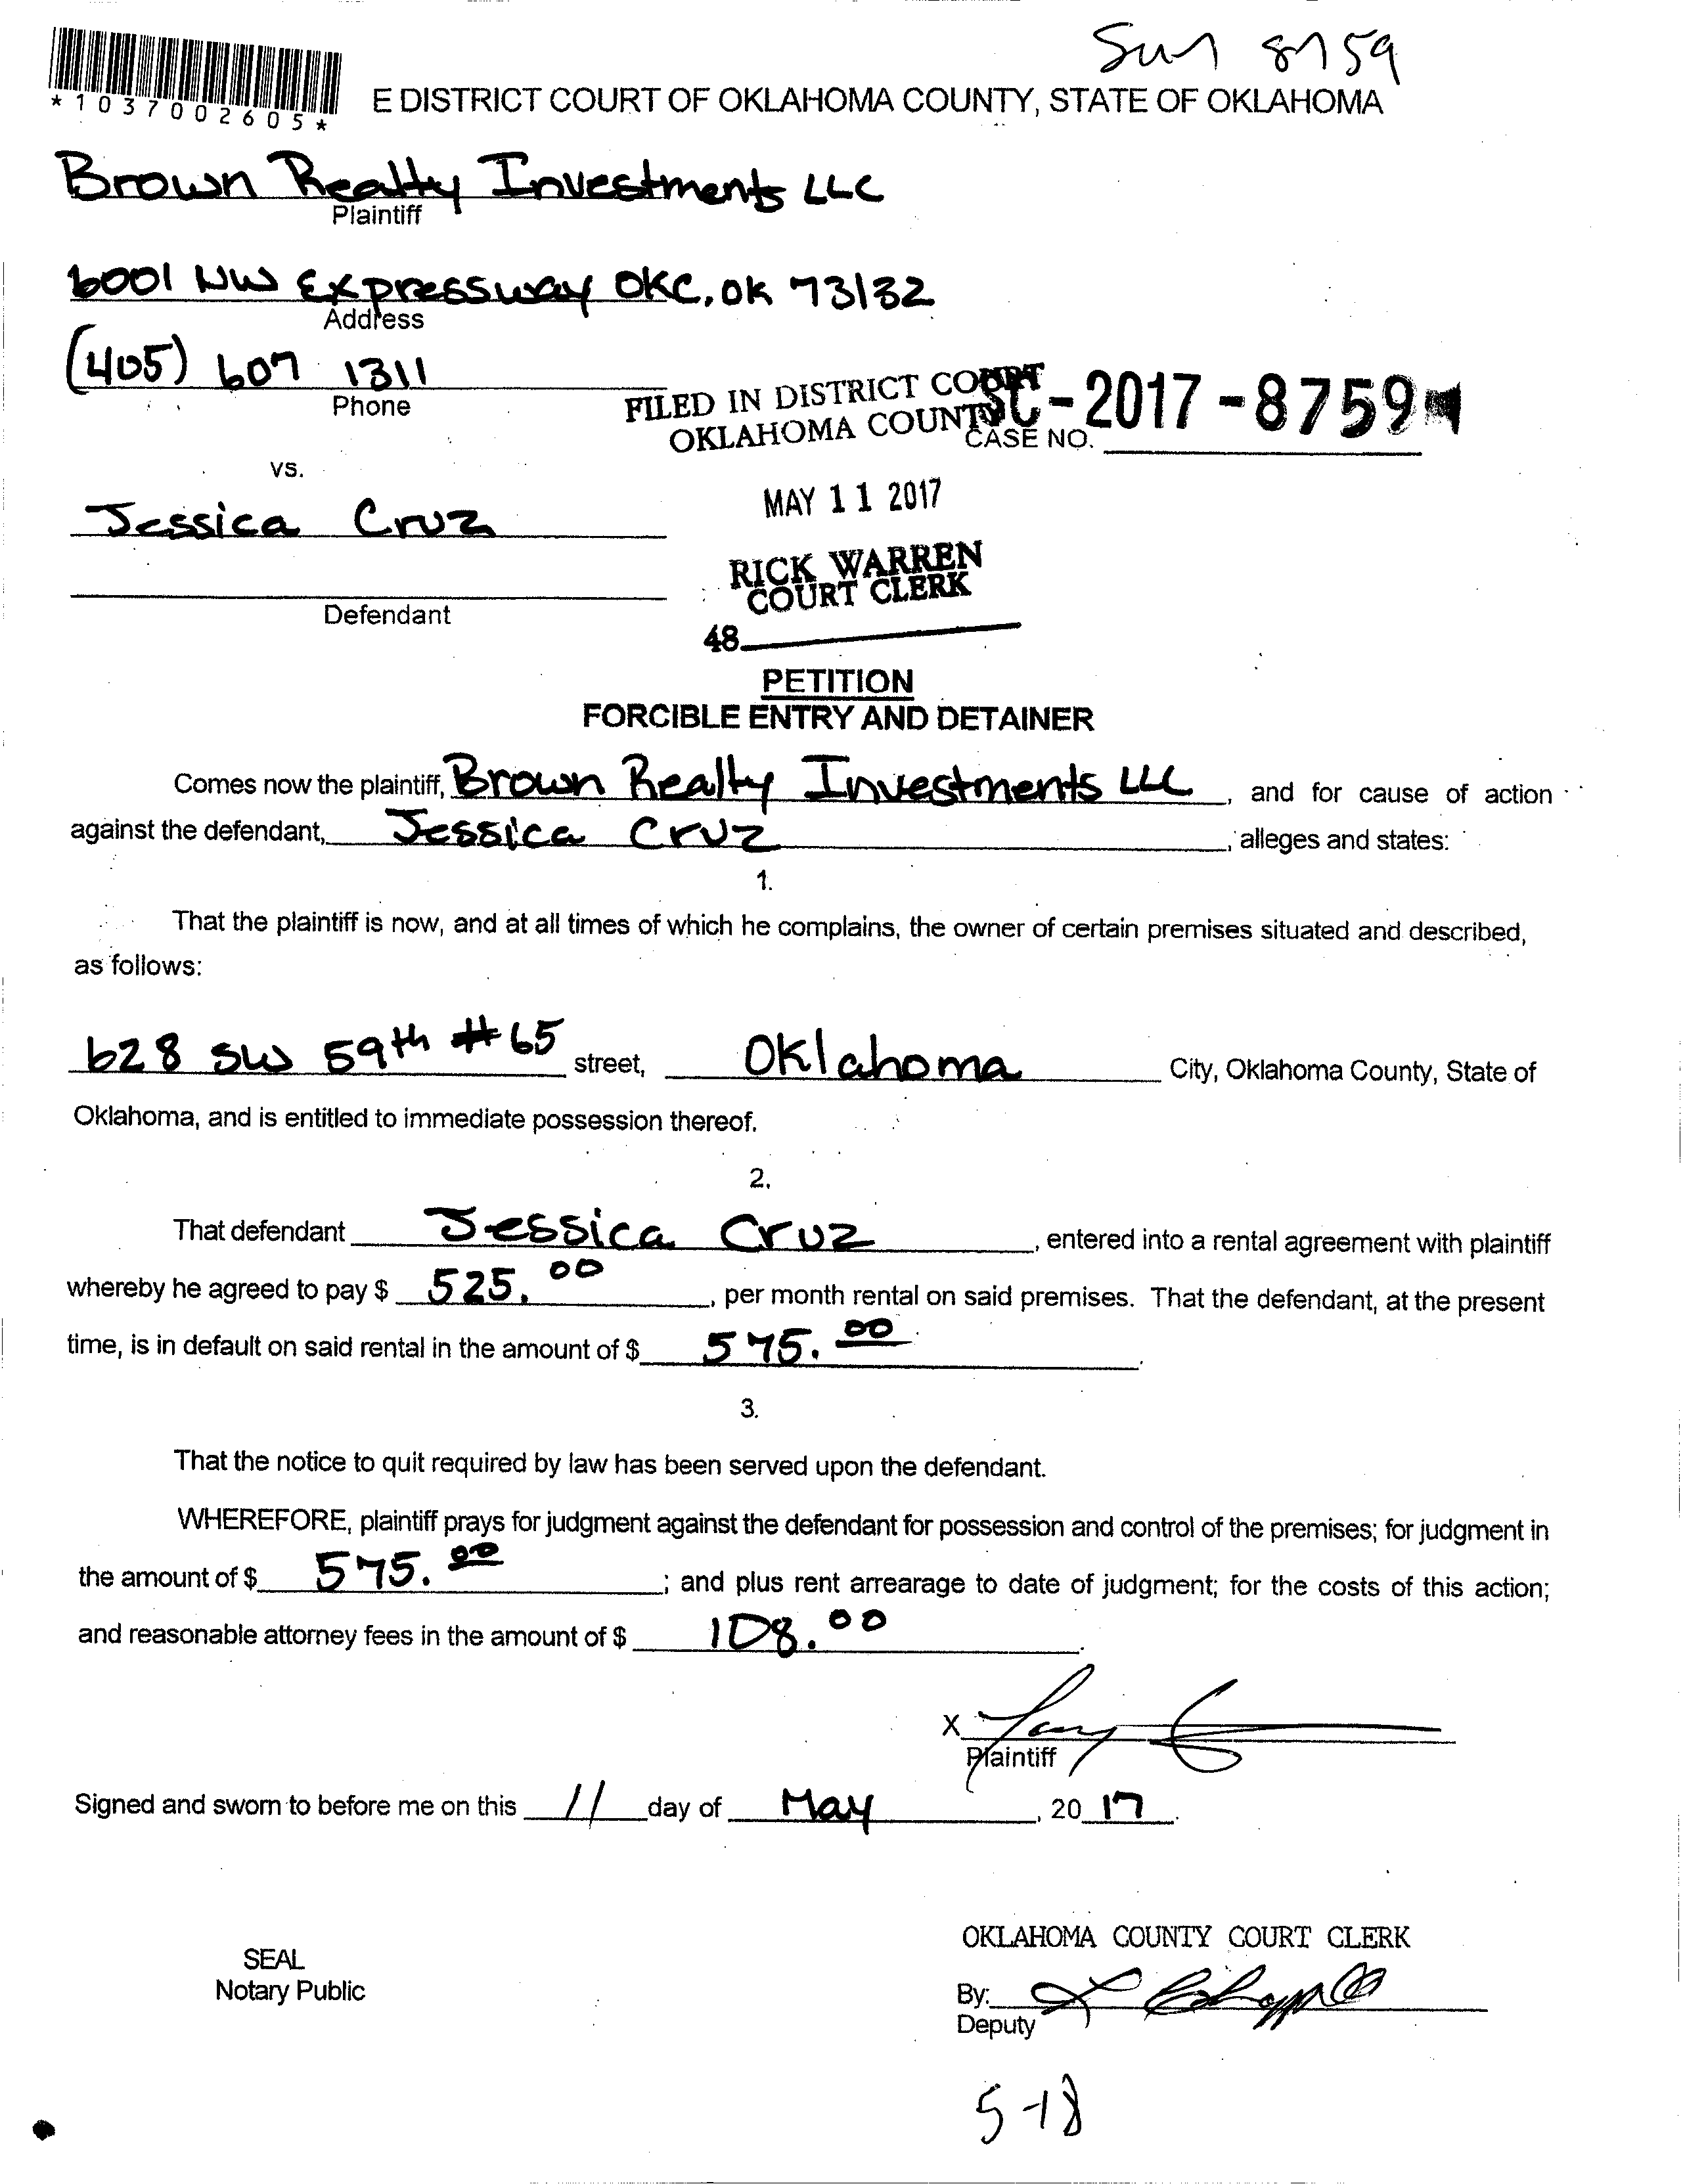 8759
*1037002605*
E DISTRICT COURT OF OKLAHOMA COUNTY, STATE OF OKLAHOMA
Brown Realty Investments LLC
Plaintiff
6001 NW Expressway OKC, OK 73132
Address
(405) 607 1311
Phone
FILED IN DISTRICT COURT
OKLAHOMA COUNTY
SC-2017-8759
CASE NO.
vs.
MAY 11 2017
Jessica Cruz
RICK WARREN
COURT CLERK
Defendant
48
PETITION
FORCIBLE ENTRY AND DETAINER
Comes now the plaintiff, Brown Realty Investments LLC, and for cause of action
against the defendant, Jessica Cruz, alleges and states:
1.
That the plaintiff is now, and at all times of which he complains, the owner of certain premises situated and described,
as follows:
628 SW 59th #65 street, Oklahoma City, Oklahoma County, State of
Oklahoma, and is entitled to immediate possession thereof.
2.
That defendant Jessica Cruz, entered into a rental agreement with plaintiff
whereby he agreed to pay $ 525.00, per month rental on said premises. That the defendant, at the present
time, is in default on said rental in the amount of $ 575.00.
3.
That the notice to quit required by law has been served upon the defendant.
WHEREFORE, plaintiff prays for judgment against the defendant for possession and control of the premises; for judgment in
the amount of $ 575.00; and plus rent arrearage to date of judgment; for the costs of this action;
and reasonable attorney fees in the amount of $ 108.00.
X
Plaintiff
Signed and sworn to before me on this 11 day of May, 2017.
OKLAHOMA COUNTY COURT CLERK
SEAL
Notary Public
By:
Deputy
5-18